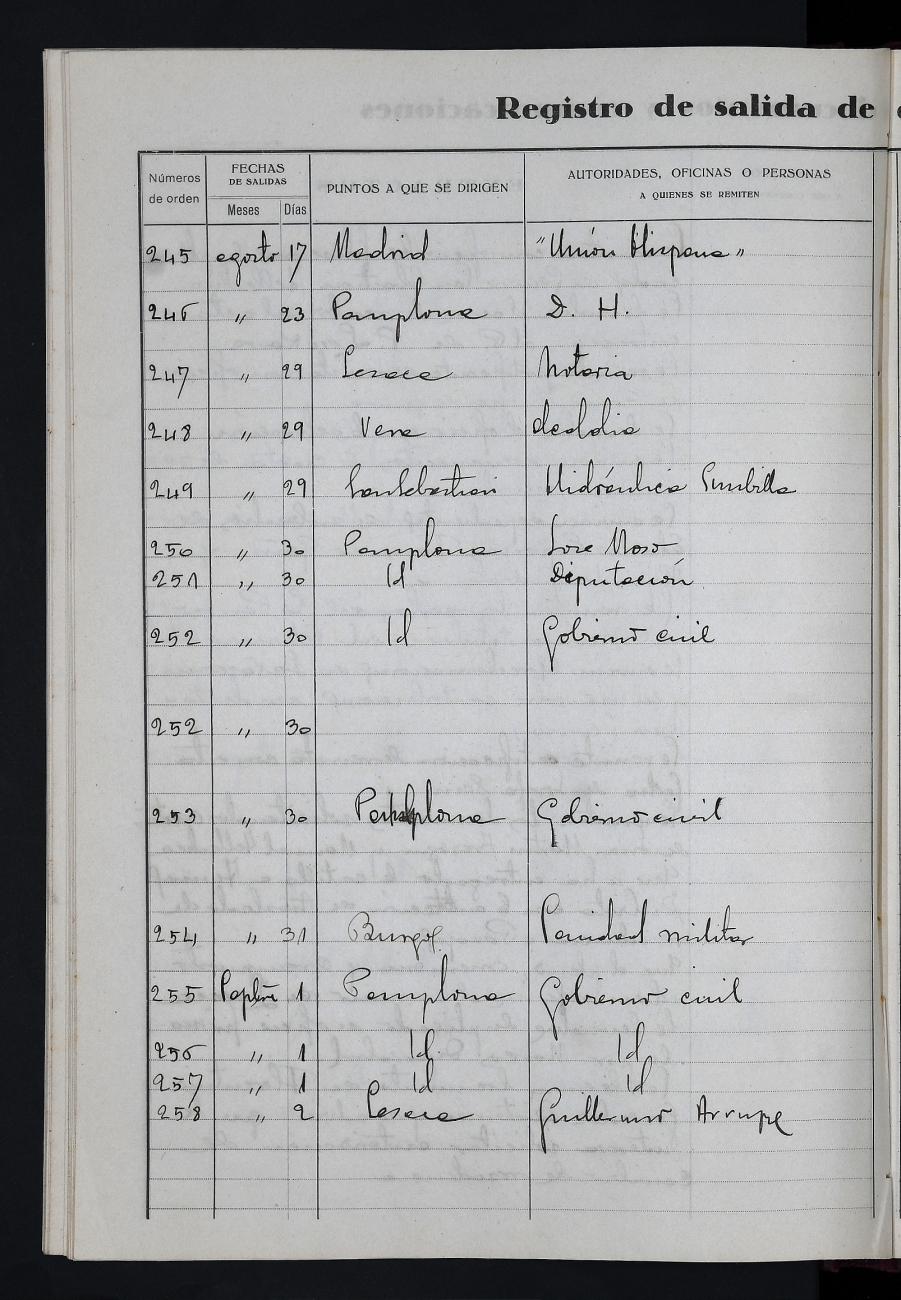 Registro de salida de
Números de orden
FECHAS DE SALIDAS
Meses Días
PUNTOS A QUE SE DIRIGEN
AUTORIDADES, OFICINAS O PERSONAS
A QUIENES SE REMITEN
245 agosto 17 Madrid "Unión Hispana"
246 " 23 Pamplona D. H.
247 " 29 Lesaca Notaria
248 " 29 Vera alcaldia
249 " 29 San Sebastian Hidráulica Sumbilla
250 " 30 Pamplona Jose
251 " 30 Id Diputación
252 " 30 Id Gobierno civil
252 " 30
253 " 30 Pamplona Gobierno civil
254 " 31 Burgos Sanidad militar
255 Sepbre 1 Pamplona Gobierno civil
256 " 1 Id Id
257 " 1 Id Id
258 " 2 Lesaca Guillermo Arrupe